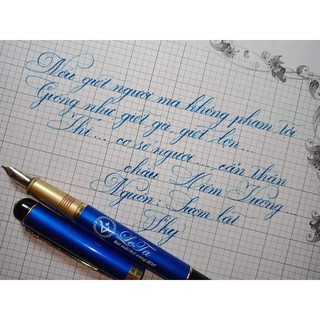 Nếu giết người mà không phạm tội
Giống như giết gà, giết lợn...
Thì... có số người.... cẩn thận
cháu Hiền Tường...
Nguồn: Sưu tầm lại
Thy
LeTa